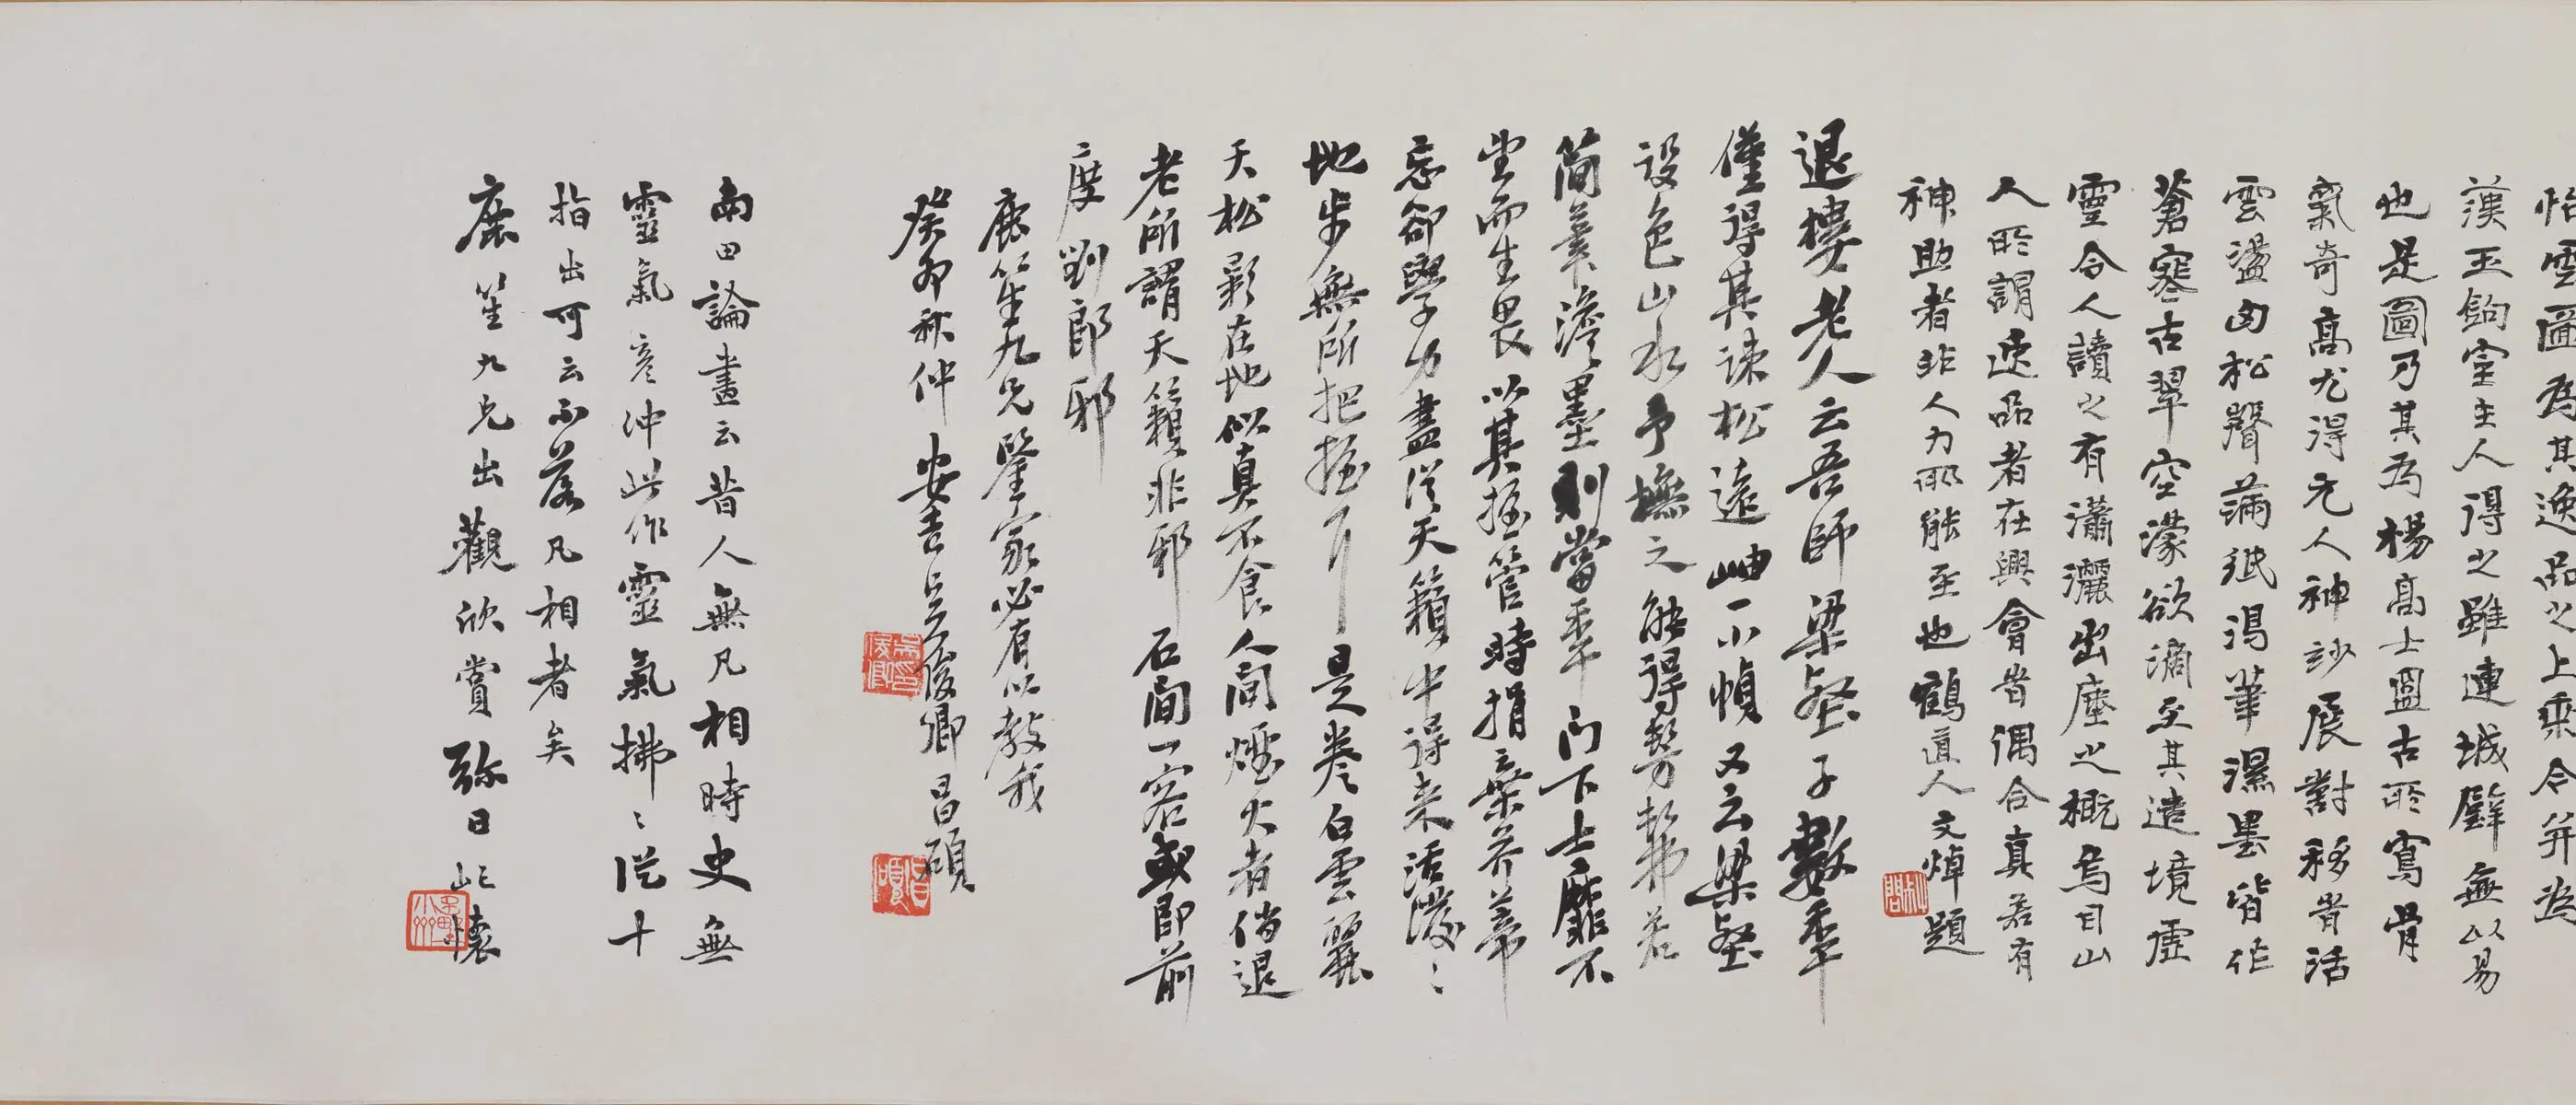 怡雲圖為其逸品之上乘今并為
漢玉鉤室主人得之雖連城璧無以易
也是圖乃其為楊高士盥古所寫骨
氣奇高尤得元人神妙展對移晷活
雲盪胸松聲滿紙渴筆濕墨皆作
蒼寒古翠空濛欲滴至其造境虛
靈令人讀之有瀟灑出塵之概烏目山
人所謂逸品者在興會時偶合真若有
神助者非人力所能至也鶴道人文焯題
退樓老人云吾師梁壑子數年
僅得其疎松遠岫一小幀又云梁壑
設色山水予撫之能得髣髴若
簡筆澹墨則當年門下士靡不
望而生畏以其握管時捐棄芥蒂
忘卻學力盡從天籟中得來活潑ミ
地步無所把握耳是卷白雲麗
天松影在地似真不食人間煙火者倘退
老所謂天籟非邪石間一客或即前
度劉郎邪
鹿笙九兄鑒家必有以教我
癸卯秋仲安吉吳俊卿昌碩
南田論畫云昔人無凡相時史無
靈氣彥沖此作靈氣拂ミ從十
指出可云不落凡相者矣
鹿笙九兄出觀欣賞弥日 懷